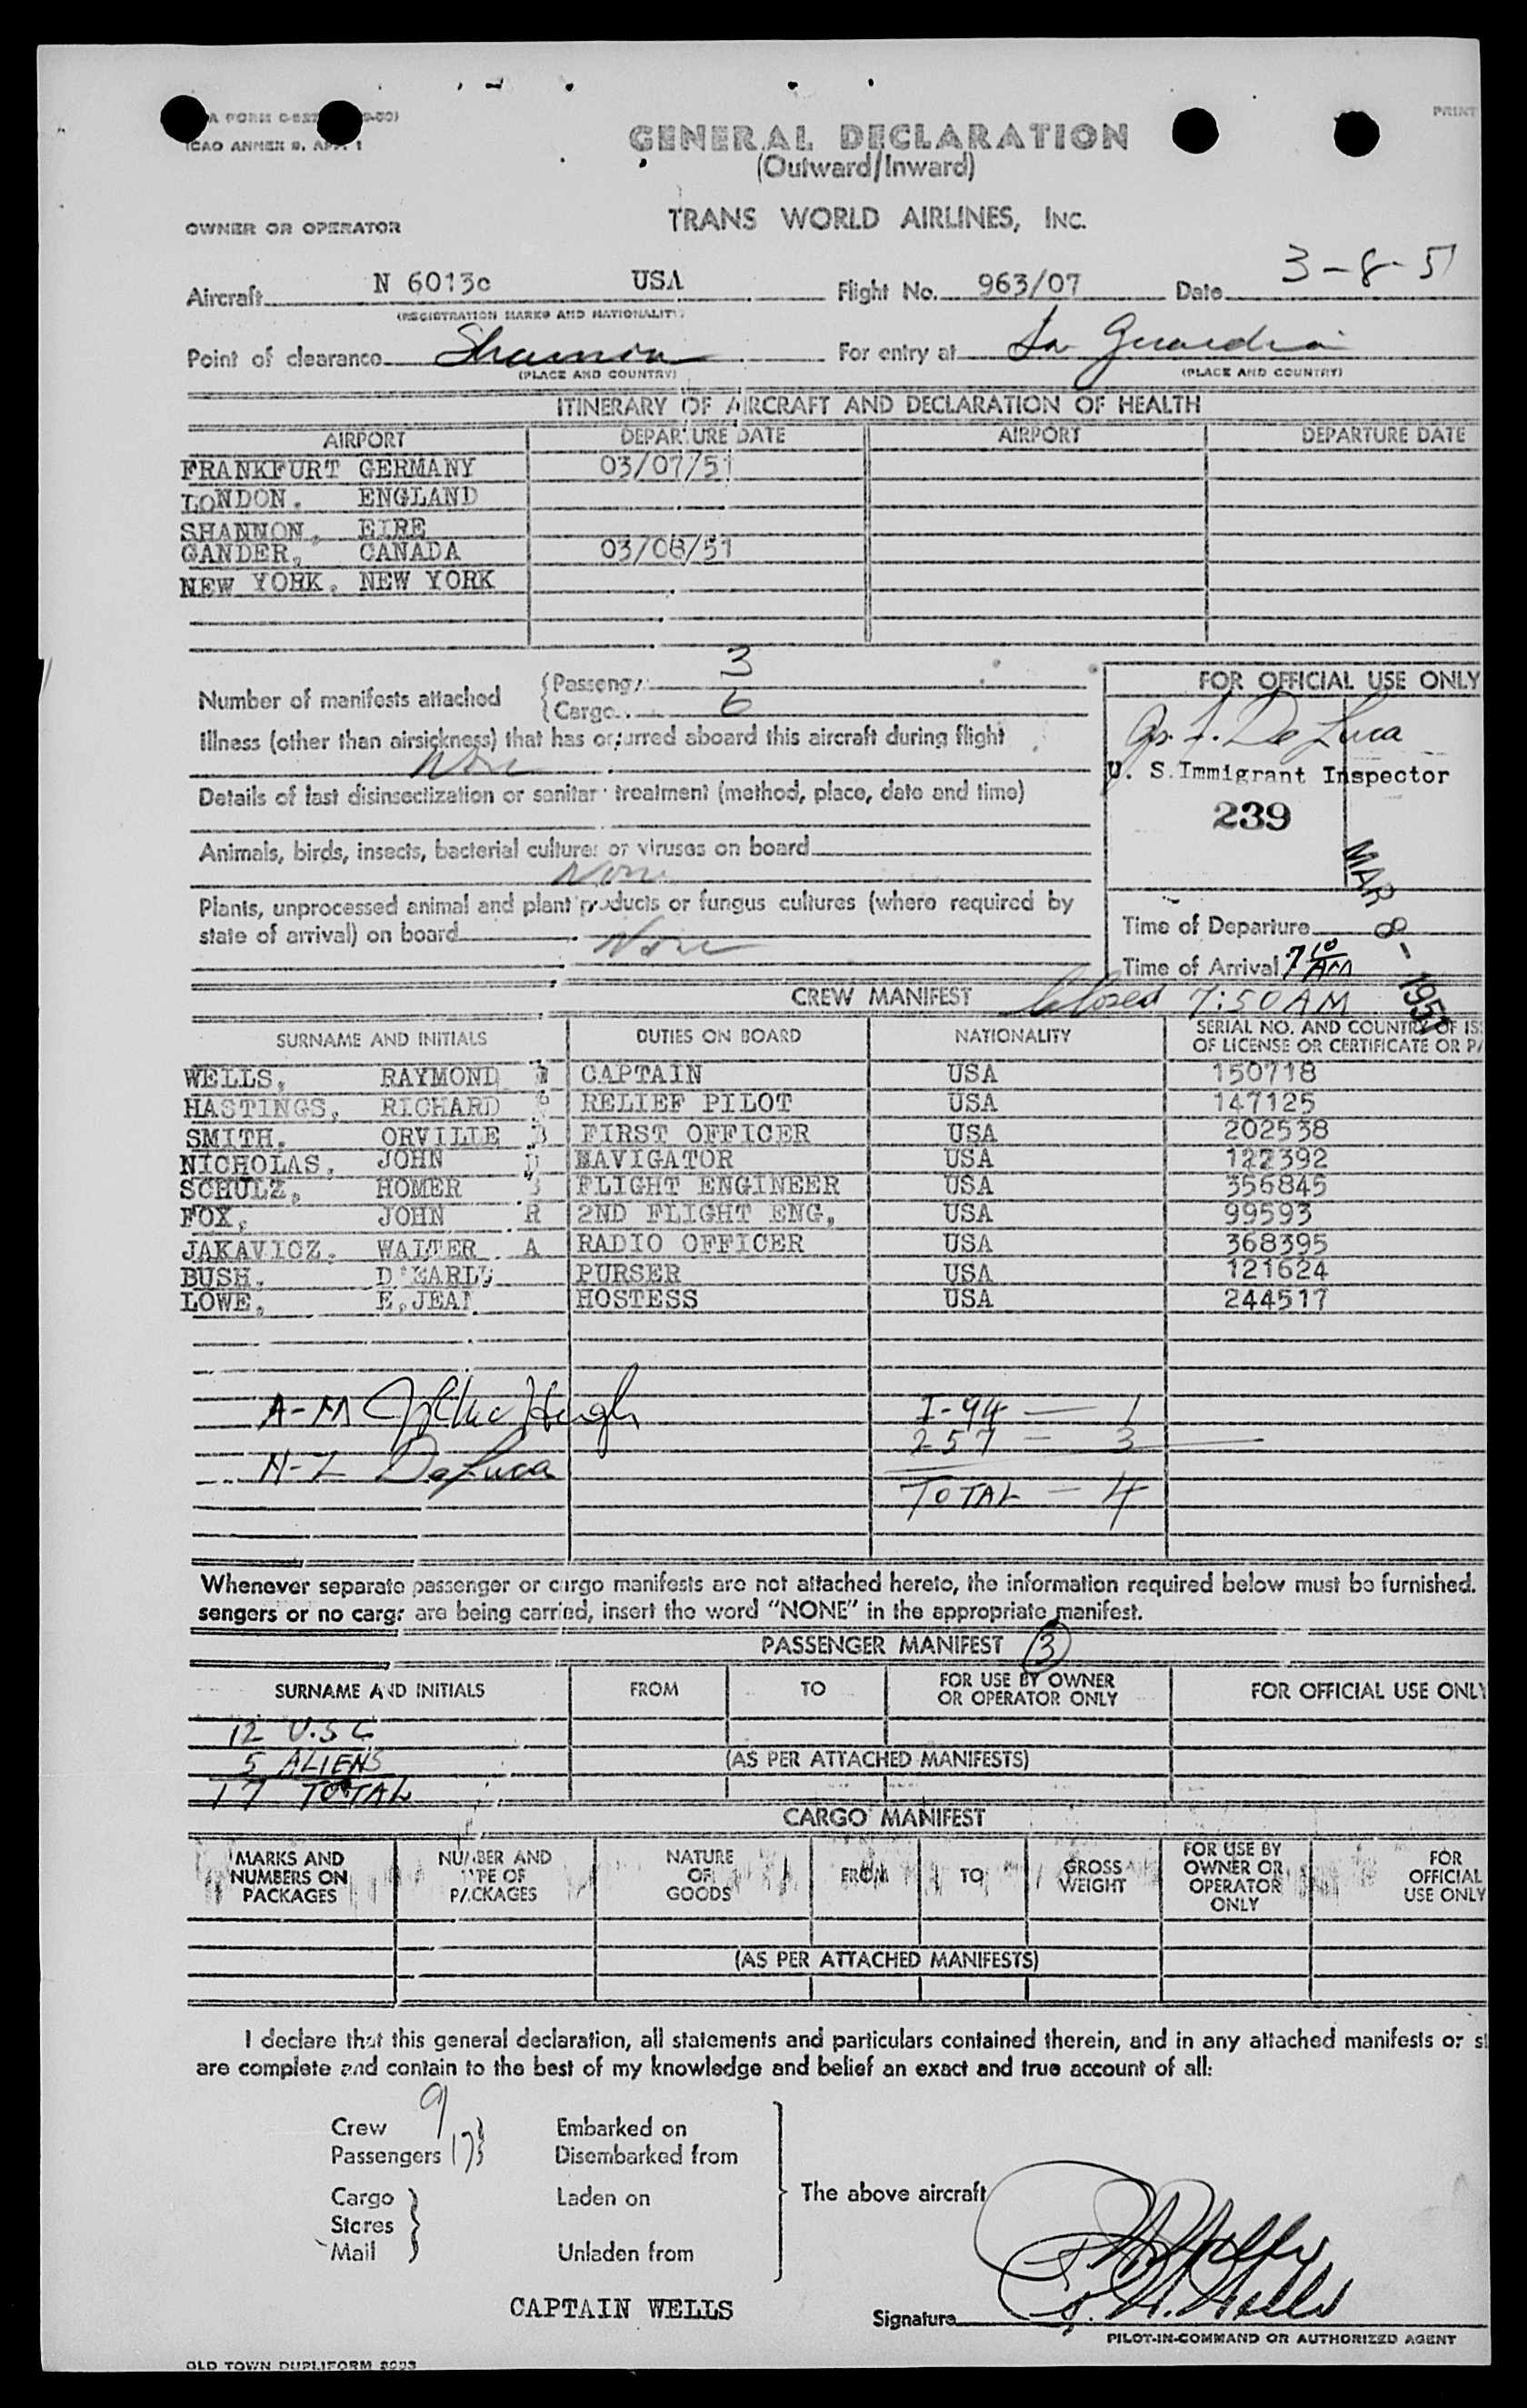 ICAO ANNEX 9, APP. 1
PRINT
GENERAL DECLARATION
(Outward/Inward)
OWNER OR OPERATOR TRANS WORLD AIRLINES, INC.
Aircraft N 6013c USA Flight No. 963/07 Date 3-8-51
(REGISTRATION MARKS AND NATIONALITY)
Point of clearance Shannon For entry at La Guardia
(PLACE AND COUNTRY) (PLACE AND COUNTRY)
ITINERARY OF AIRCRAFT AND DECLARATION OF HEALTH
AIRPORT DEPARTURE DATE AIRPORT DEPARTURE DATE
FRANKFURT GERMANY 03/07/51
LONDON. ENGLAND
SHANNON, EIRE
GANDER, CANADA 03/08/51
NEW YORK. NEW YORK
Number of manifests attached {Passenger 3
{Cargo 6
Illness (other than airsickness) that has occurred aboard this aircraft during flight
None
Details of last disinsectization or sanitary treatment (method, place, date and time)
Animals, birds, insects, bacterial cultures or viruses on board
None
Plants, unprocessed animal and plant products or fungus cultures (where required by
state of arrival) on board None
FOR OFFICIAL USE ONLY
De Luca
U. S. Immigrant Inspector
239
MAR 8 - 1951
Time of Departure
Time of Arrival 7 10 AM
CREW MANIFEST 7:50 AM
SURNAME AND INITIALS DUTIES ON BOARD NATIONALITY SERIAL NO. AND COUNTRY OF IS
OF LICENSE OR CERTIFICATE OR P
WELLS, RAYMOND CAPTAIN USA 150718
HASTINGS, RICHARD RELIEF PILOT USA 147125
SMITH. ORVILLE B FIRST OFFICER USA 202538
NICHOLAS, JOHN D NAVIGATOR USA 122392
SCHULZ, HOMER FLIGHT ENGINEER USA 356845
FOX, JOHN R 2ND FLIGHT ENG, USA 99593
JAKAVICZ, WALTER A RADIO OFFICER USA 368395
BUSH, D'EARLE PURSER USA 121624
LOWE, E,JEAN HOSTESS USA 244517
A-M
I-94 — 1
257 — 3
N-Z DeLuca
TOTAL — 4
Whenever separate passenger or cargo manifests are not attached hereto, the information required below must be furnished.
sengers or no cargo are being carried, insert the word "NONE" in the appropriate manifest.
PASSENGER MANIFEST 3
SURNAME AND INITIALS FROM TO FOR USE BY OWNER OR OPERATOR ONLY FOR OFFICIAL USE ONLY
12 U.S C
5 ALIENS (AS PER ATTACHED MANIFESTS)
17 TOTAL
CARGO MANIFEST
MARKS AND NUMBERS ON PACKAGES NUMBER AND TYPE OF PACKAGES NATURE OF GOODS FROM TO GROSS WEIGHT FOR USE BY OWNER OR OPERATOR ONLY FOR OFFICIAL USE ONLY
(AS PER ATTACHED MANIFESTS)
I declare that this general declaration, all statements and particulars contained therein, and in any attached manifests or s
are complete and contain to the best of my knowledge and belief an exact and true account of all:
Crew 9 Embarked on
Passengers 17 Disembarked from
Cargo Laden on The above aircraft
Stores
Mail Unladen from
CAPTAIN WELLS
Signature R. N. Wells
PILOT-IN-COMMAND OR AUTHORIZED AGENT
OLD TOWN DUPLIFORM